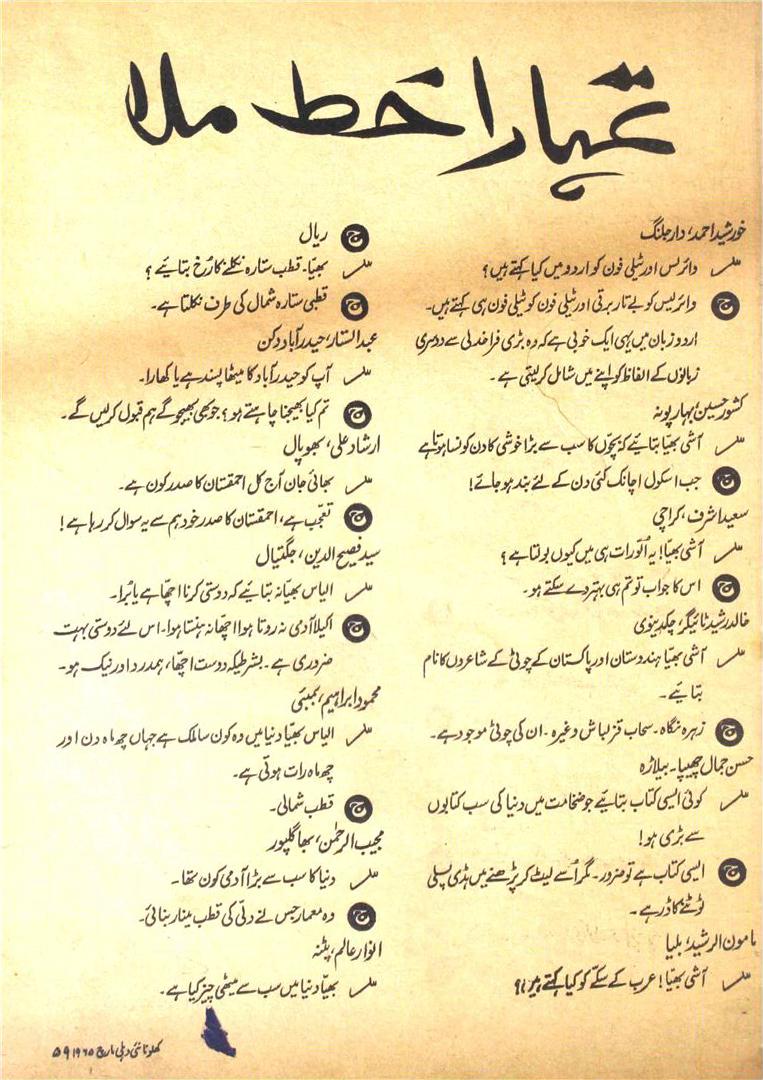 تمہارا خط ملا
خورشید احمد، دارجلنگ
س وائرلس اور ٹیلی فون کو اردو میں کیا کہتے ہیں؟
ج وائرلیس کو بے تار برقی اور ٹیلی فون کو ٹیلی فون ہی کہتے ہیں۔
اردو زبان میں یہی ایک خوبی ہے کہ وہ بڑی فراخدلی سے دوسری
زبانوں کے الفاظ کو اپنے میں شامل کرلیتی ہے۔
کشور حسین بہار، پونہ
س آشی بھیّا بتائیے کہ بچّوں کا سب سے بڑا خوشی کا دن کونسا ہوتا ہے
ج جب اسکول اچانک کئی دن کے لئے بند ہو جائے!
سعید اشرف، کراچی
س آشی بھیّا! یہ اُلّو رات ہی میں کیوں بولتا ہے؟
ج اس کا جواب تو تم ہی بہتر دے سکتے ہو۔
خالد رشید ٹائیگر،
س آشی بھیّا ہندوستان اور پاکستان کے چوٹی کے شاعروں کا نام
بتایئے۔
ج زہرہ نگاہ۔ سحاب قزلباش وغیرہ۔ ان کی چوٹی موجود ہے۔
حسن جمال چھیپا۔ بیلاڑہ
س کوئی ایسی کتاب بتایئے جو ضخامت میں دنیا کی سب کتابوں
سے بڑی ہو!
ج ایسی کتاب ہے تو ضرور۔ مگر اُسے لیٹ کر پڑھنے میں ہڈی پسلی
ٹوٹنے کا ڈر ہے۔
مامون الرشید، بلیا
س آشی بھیّا! عرب کے سکّے کو کیا کہتے ہیں؟
ج ریال
س بھیّا۔ قطب ستارہ نکلنے کا رُخ بتایئے؟
ج قطبی ستارہ شمال کی طرف نکلتا ہے۔
عبدالستار، حیدرآباد دکن
س آپ کو حیدرآباد کا میٹھا پسند ہے یا کھارا۔
ج تم کیا بھیجنا چاہتے ہو؟ جو بھی بھیجو گے ہم قبول کرلیں گے۔
ارشاد علی، بھوپال
س بھائی جان آج کل احمقستان کا صدر کون ہے۔
ج تعجّب ہے، احمقستان کا صدر خود ہم سے یہ سوال کر رہا ہے!
سید فصیح الدین، جگتیال
س الیاس بھیّا نہ بتایئے کہ دوستی کرنا اچھّا ہے یا بُرا۔
ج اکیلا آدمی نہ روتا ہوا اچھّا نہ ہنستا ہوا۔ اس لئے دوستی بہت
ضروری ہے۔ بشرطیکہ دوست اچھّا، ہمدرد اور نیک ہو۔
محمود ابراہیم، بمبئی
س الیاس بھیّا دنیا میں وہ کون سا ملک ہے جہاں چھ ماہ دن اور
چھ ماہ رات ہوتی ہے۔
ج قطب شمالی۔
مجیب الرحمٰن، بھاگلپور
س دنیا کا سب سے بڑا آدمی کون تھا۔
ج وہ معمار جس نے دلّی کی قطب مینار بنائی۔
انوار عالم، پٹنہ
س بھیّا دنیا میں سب سے میٹھی چیز کیا ہے۔
کھلونا نئی دہلی مارچ ۱۹۶۵ ۵۹